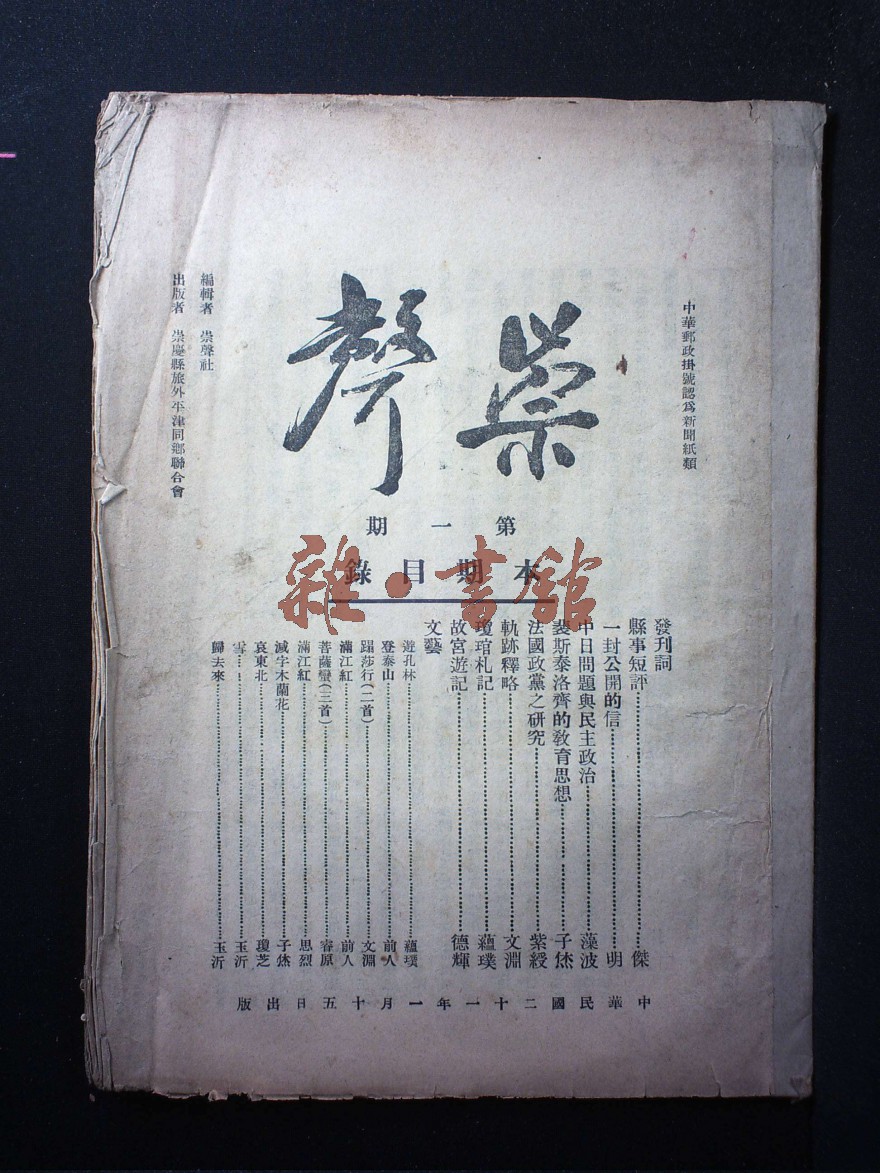 中華郵政掛號認爲新聞紙類
崇聲
第一期
本期目錄
發刊詞
縣事短評 傑
一封公開的信 明
中日問題與民主政治 藻波
裴斯泰洛齊的教育思想 子烋
法國政黨之研究 紫綬
軌跡釋略 文淵
瓊琯札記 蘊璞
故宮遊記 德輝
文藝
遊孔林 蘊璞
登泰山 前人
蹋莎行(二首) 文淵
滿江紅 前人
菩薩蠻(三首) 睿原
滿江紅 思烈
減字木蘭花 子烋
哀東北 瓊芝
雪 玉沂
歸去來 玉沂
編輯者 崇聲社
出版者 崇慶縣旅外平津同鄉聯合會
中華民國二十一年一月十五日出版
雜·書舘